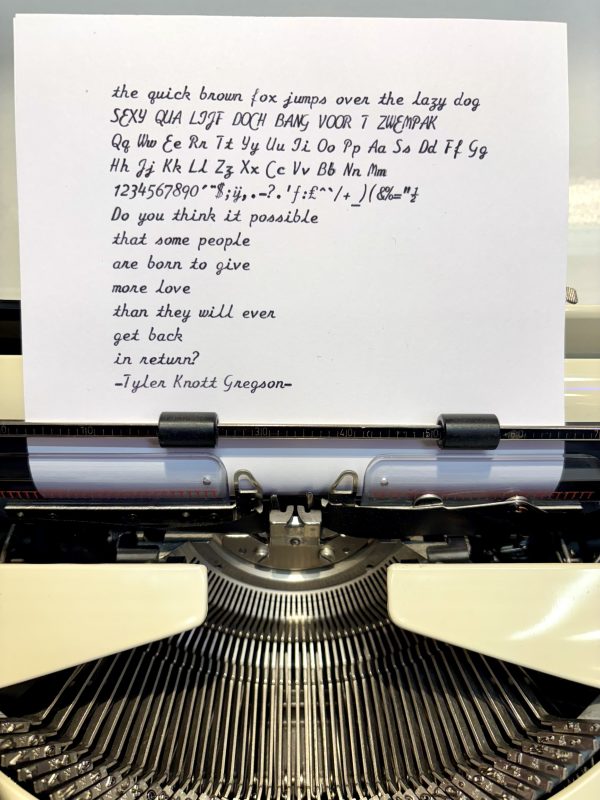 the quick brown fox jumps over the lazy dog
SEXY QUA LIJF DOCH BANG VOOR T ZWEMPAK
Qq Ww Ee Rr Tt Yy Uu Ii Oo Pp Aa Ss Dd Ff Gg
Hh Jj Kk Ll Zz Xx Cc Vv Bb Nn Mm
1234567890´¨$;ÿ,.-?.'ƒ:£^`/+_)(&%="½
Do you think it possible
that some people
are born to give
more love
than they will ever
get back
in return?
-Tyler Knott Gregson-